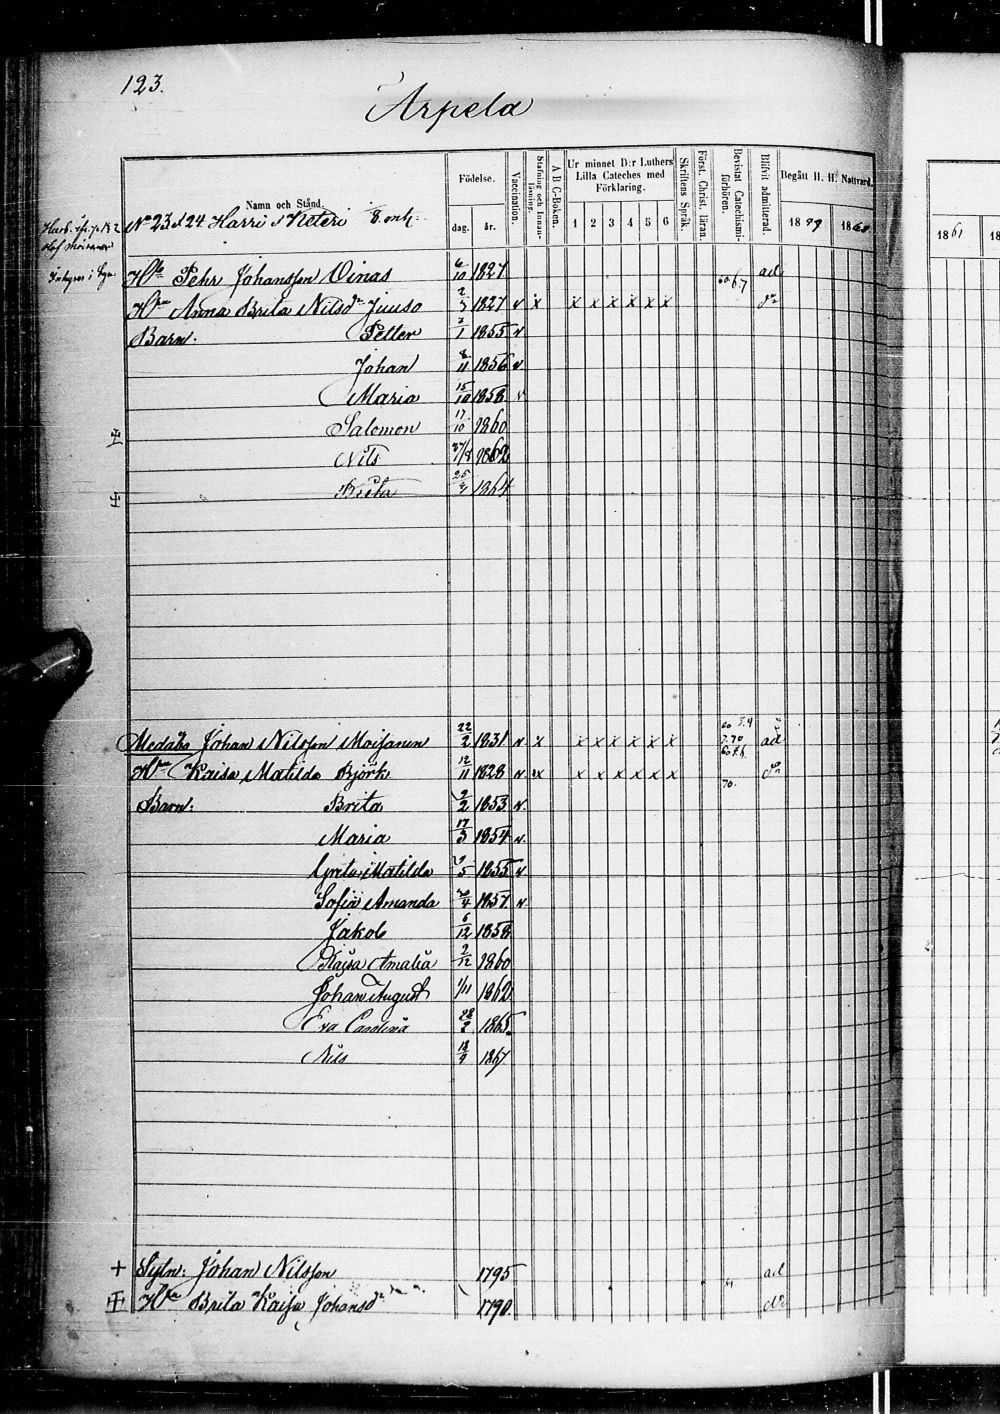 123.
Arpela
Namn och Stånd.
Födelse.
dag. år.
Vaccination.
Stafning och Innanläsning.
A B C-Boken.
Ur minnet D:r Luthers Lilla Cateches med Förklaring.
1 2 3 4 5 6
Skriftens Språk.
Först. Christ. läran.
Bevistat Catechismiförhören.
Blifvit admitterad.
Begått H. H. Nattvard.
1899 1860
1861
No 23 & 24 Harri & Kieteri
Hde Pehr Johansson Oinas 6/10 1827 ad
Hm Anna Brita Nilsdr Juuso 1827 v x x x x x x x dn
Barn: Petter 2/1 1855 v
Johan 8/11 1856 v
Maria 15/10 1858 v
Salomon 17/10 1860
Nils 27/8 1862
Brita 25 1864
Medåbo Johan Nilsson Moisanen 22/2 1831 v x x x x x x x ad
Hm Kaisa Matilda Björk 12/11 1828 v x x x x x x x 70. do
Barn: Brita 2/2 1853 v.
Maria 17/3 1854 v.
Greta Matilda 1855 v
Sofia Amanda 1857 v
Jakob 6/12 1858
Kajsa Amalia 2/12 1860
Johan August 1/11 1862
Eva Carolina 28/2 1865
Nils 18/9 1867
+ Sytn: Johan Nilsson 1795 ad
Hm Brita Kaisa Johansdr 1790. do